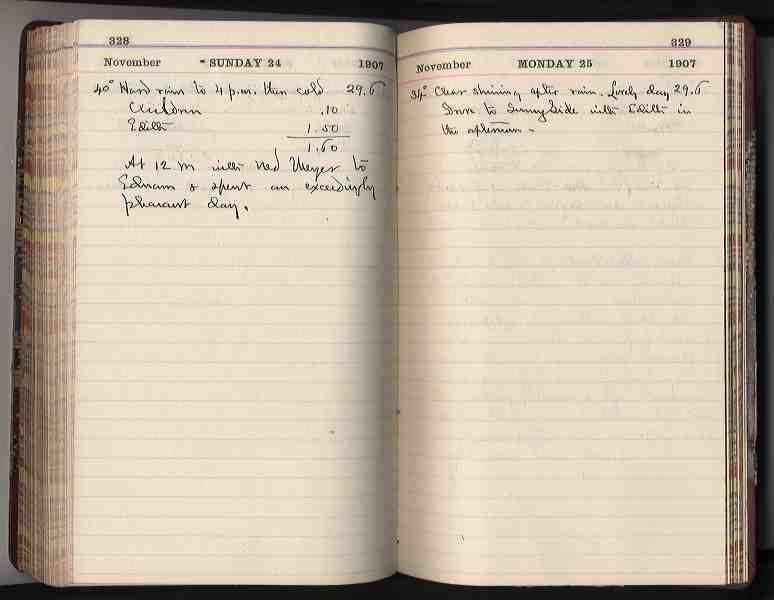 328
November SUNDAY 24 1907
40° Hard rain to 4 p.m. then cold 29.6
Children .10
Edith 1.50
1.60
At 12 m with Ned Meyer to
& spent an exceedingly
pleasant day.
329
November MONDAY 25 1907
34° Clear shining after rain. Lovely day 29.6
Drove to SunnySide with Edith in
the afternoon -